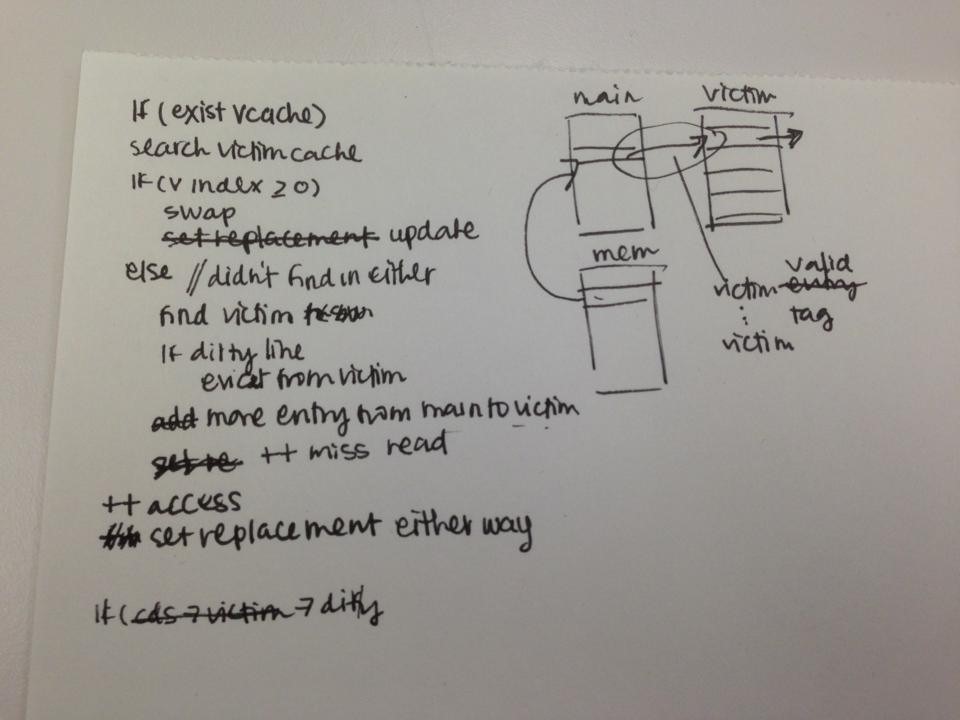 If (exist vcache)
search victim cache
if (v index ≥ 0)
swap
set replacement update
else // didn't find in either
find victim
If dirty line
evict from victim
add more entry from main to victim
set re ++ miss read
++ access
set replacement either way
If (cds → victim → dirty
main
victim
mem
victim valid entry
:
tag
victim